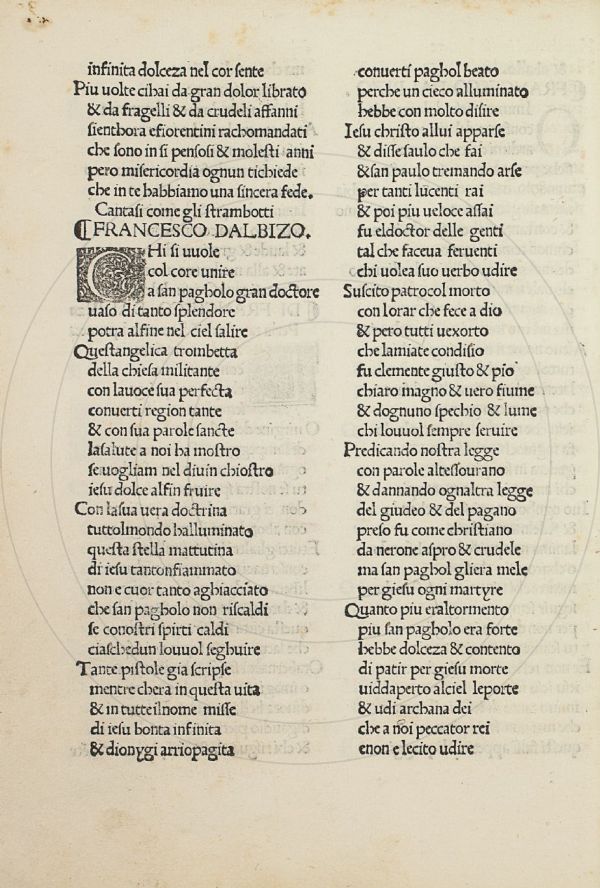 infinita dolceza nel cor sente
Piu uolte cibai da gran dolor librato
& da fragelli & da crudeli affanni
sienthora efiorentini rachomandati
che sono in si pensosi & molesti anni
pero misericordia ognun tichiede
che in te habbiamo una sincera fede.
Cantasi come gli strambotti
⁋FRANCESCO DALBIZO.
CHi si uuole
col core unire
a san pagholo gran doctore
uaso di tanto splendore
potra alfine nel ciel salire
Questangelica trombetta
della chiesa militante
con lauoce sua perfecta
conuerti region tante
& con sua parole sancte
lasalute a noi ha mostro
se uogliam nel diuin chiostro
iesu dolce alfin fruire
Con lasua uera doctrina
tuttolmondo halluminato
questa stella mattutina
di iesu tantonfiammato
non e cuor tanto aghiacciato
che san pagholo non riscaldi
se conostri spirti caldi
ciaschedun louuol seghuire
Tante pistole gia scripse
mentre chera in questa uita
& in tutteilnome misse
di iesu bonta infinita
& dionygi arriopagita
conuerti paghol beato
perche un cieco alluminato
hebbe con molto disire
Iesu christo allui apparse
& disse saulo che fai
& san paulo tremando arse
per tanti lucenti rai
& poi piu ueloce assai
fu eldoctor delle genti
tal che faceua feruenti
chi uolea suo uerbo udire
Suscito patrocol morto
con lorar che fece a dio
& pero tutti uexorto
che lamiate condisio
fu clemente giusto & pio
chiaro magno & uero fiume
& dognuno spechio & lume
chi louuol sempre seruire
Predicando nostra legge
con parole altessourano
& dannando ognaltra legge
del giudeo & del pagano
preso fu come christiano
da nerone aspro & crudele
ma san paghol gliera mele
per giesu ogni martyre
Quanto piu eraltormento
piu san pagholo era forte
hebbe dolceza & contento
di patir per giesu morte
uiddaperto alciel leporte
& udi archana dei
che a noi peccator rei
enon e lecito udire